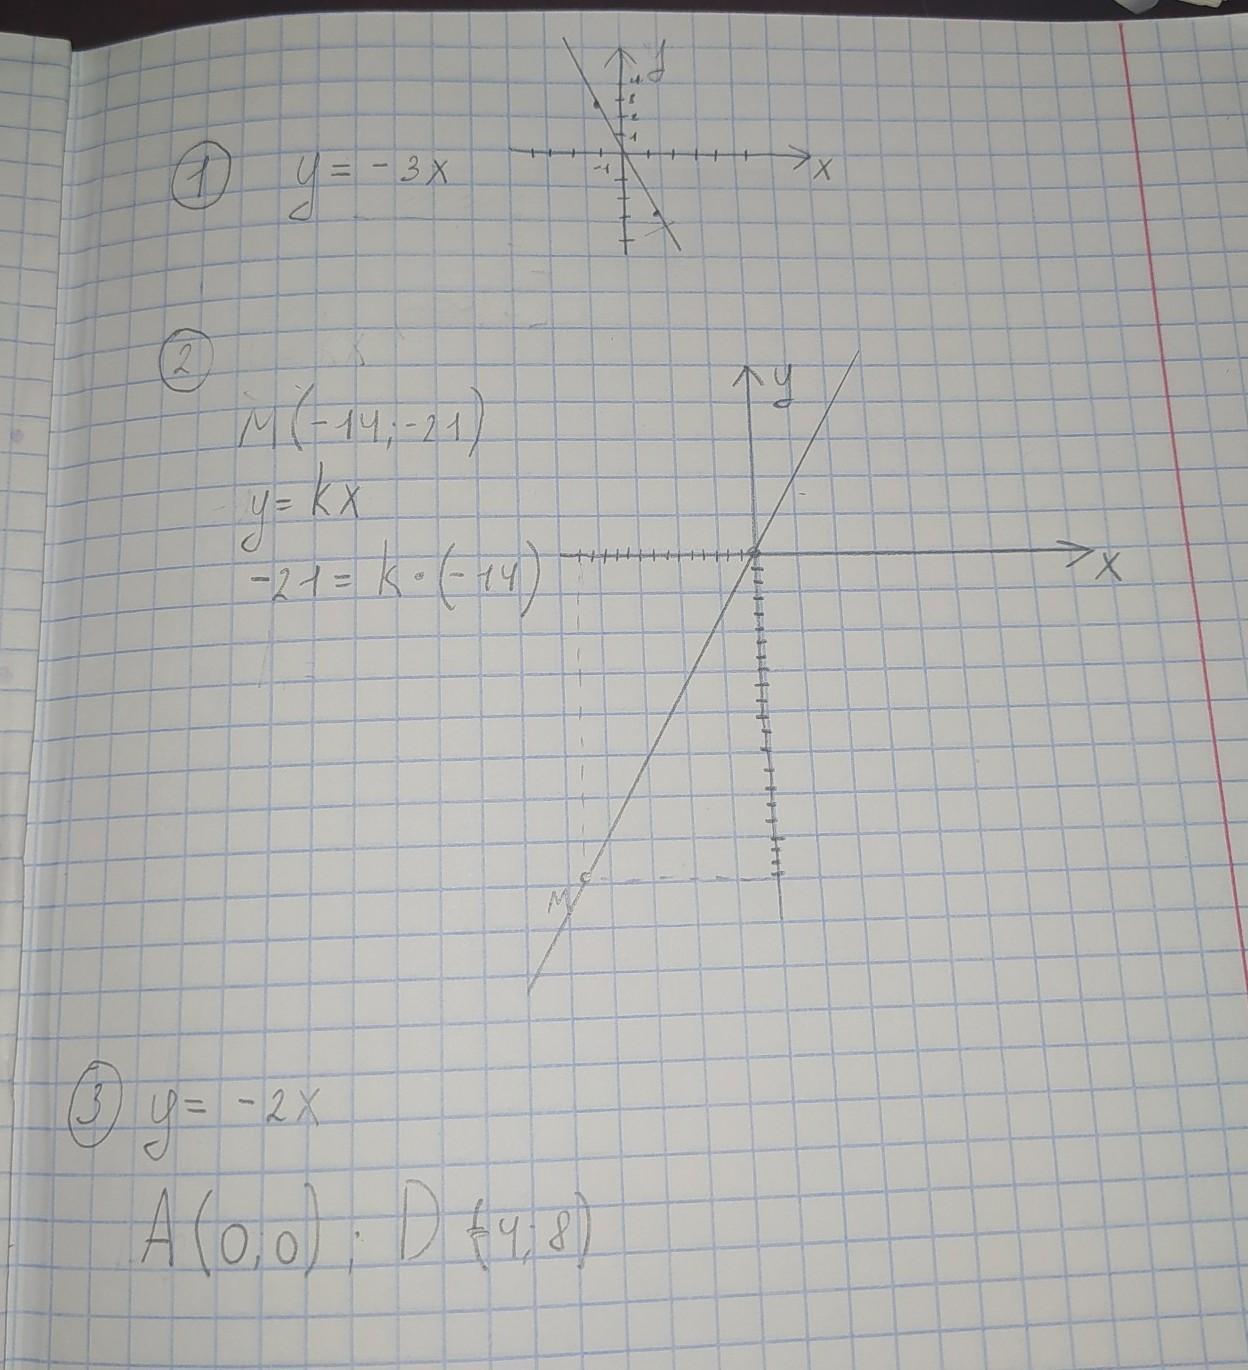 y
4
3
2
1
① y = -3x
-1
x
②
y
M(-14;-21)
y = kx
-21 = k · (-14)
x
M
③ y = -2x
A(0;0); D(-4;8)